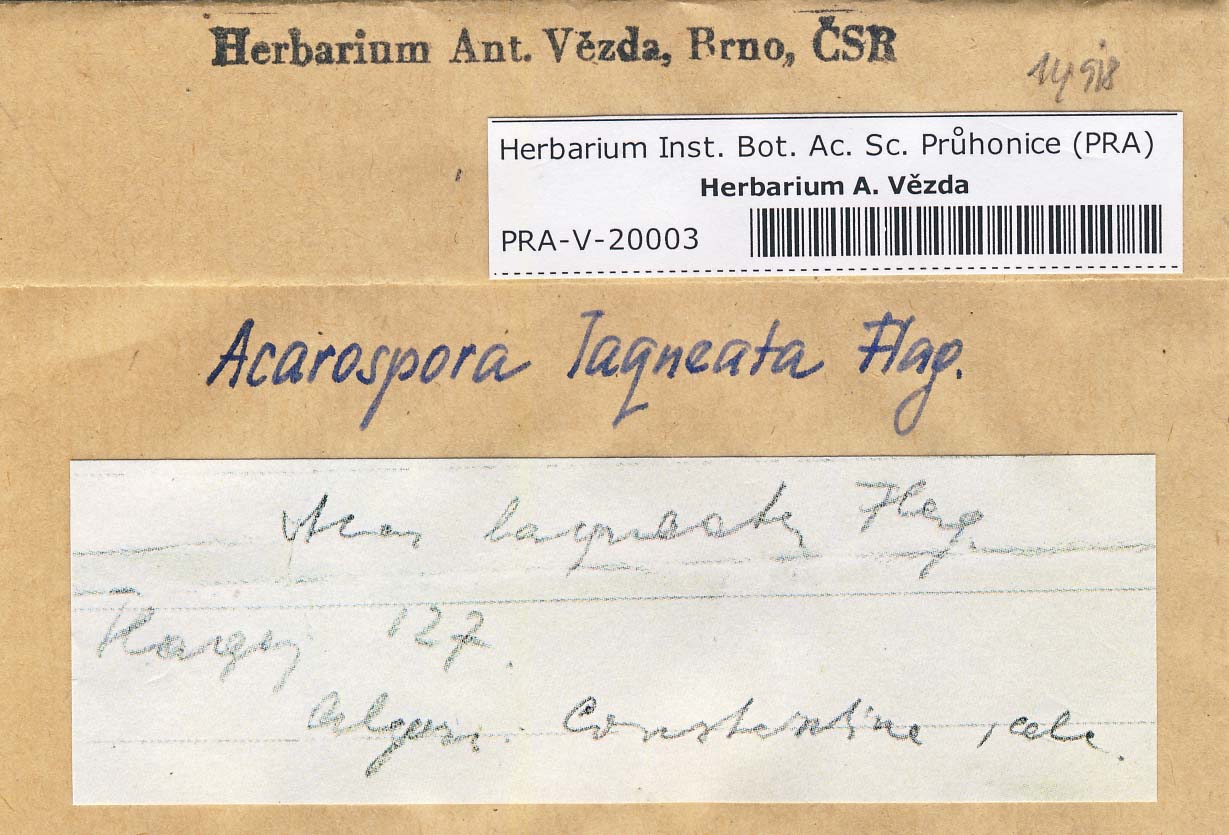 Herbarium Ant. Vězda, Brno, ČSR
Herbarium Inst. Bot. Ac. Sc. Průhonice (PRA)
Herbarium A. Vězda
PRA-V-20003
Acarospora laqneata Flag.
laqueata Flag.
127.
Constantine, calc.